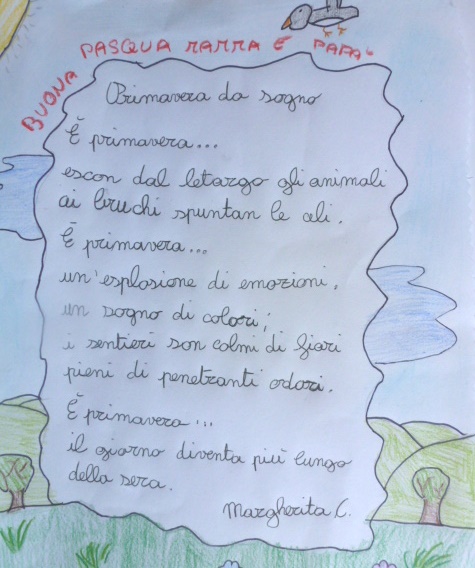 BUONA PASQUA MAMMA E PAPA'
Primavera da sogno
È primavera...
escon dal letargo gli animali
ai bruchi spuntan le ali.
È primavera...
un'esplosione di emozioni,
un sogno di colori;
i sentieri son colmi di fiori
pieni di penetranti odori.
È primavera...
il giorno diventa più lungo
della sera.
Margherita C.